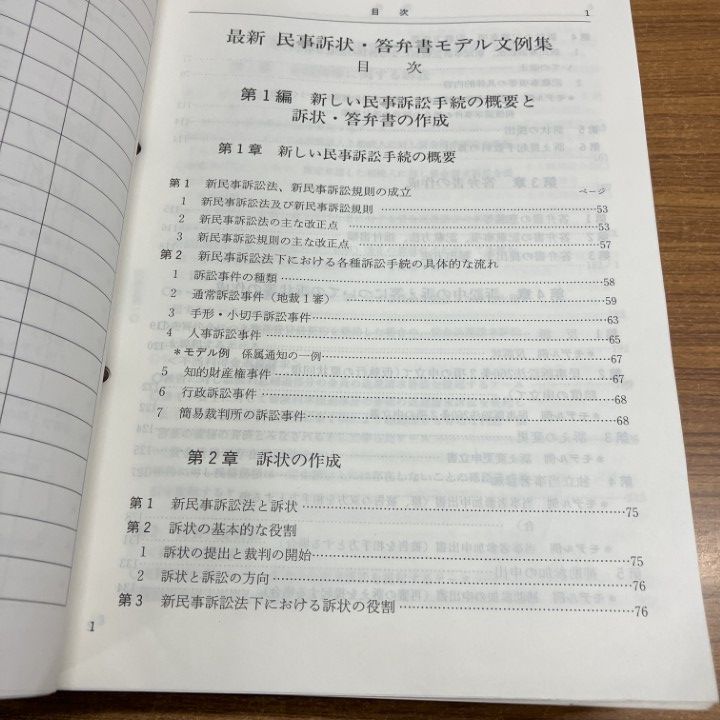 目次 1
最新 民事訴状・答弁書モデル文例集
目次
第1編 新しい民事訴訟手続の概要と
訴状・答弁書の作成
第1章 新しい民事訴訟手続の概要
第1 新民事訴訟法、新民事訴訟規則の成立 ページ
1 新民事訴訟法及び新民事訴訟規則……53
2 新民事訴訟法の主な改正点……53
3 新民事訴訟規則の主な改正点……57
第2 新民事訴訟法下における各種訴訟手続の具体的な流れ
1 訴訟事件の種類……58
2 通常訴訟事件(地裁1審)……59
3 手形・小切手訴訟事件……63
4 人事訴訟事件……65
*モデル例 係属通知の一例……67
5 知的財産権事件……67
6 行政訴訟事件……68
7 簡易裁判所の訴訟事件……68
第2章 訴状の作成
第1 新民事訴訟法と訴状……75
第2 訴状の基本的な役割
1 訴状の提出と裁判の開始……75
2 訴状と訴訟の方向……76
第3 新民事訴訟法下における訴状の役割……76
1